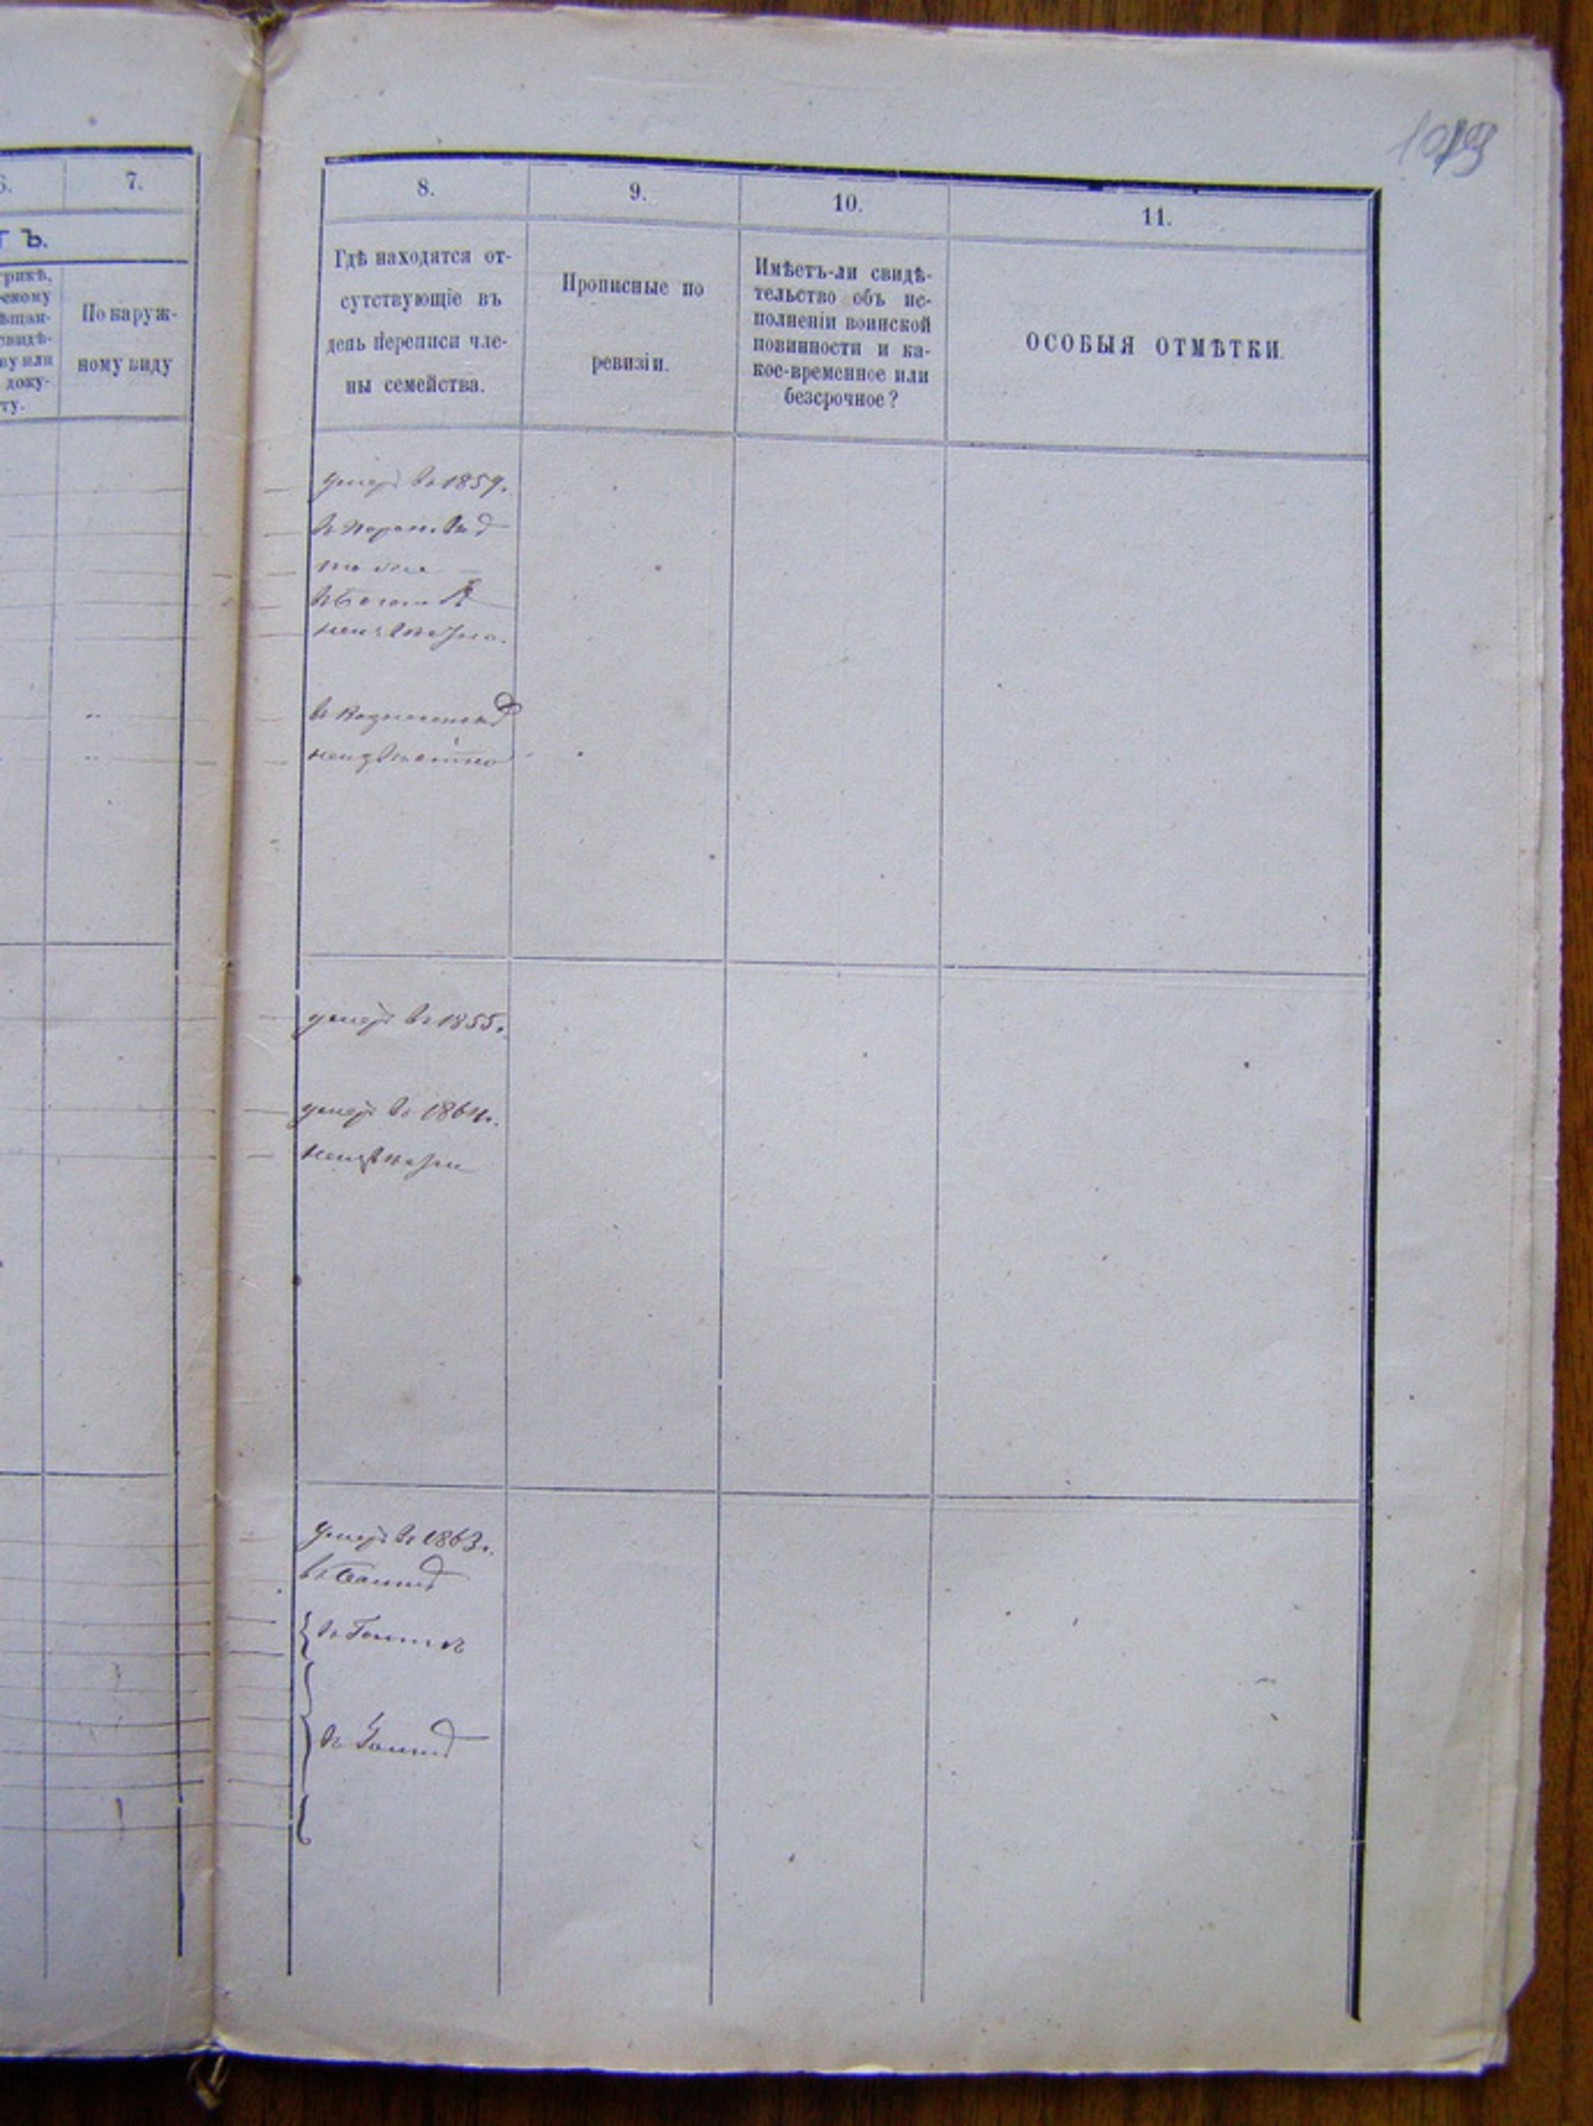 6.
7.
ТЪ.
трикѣ,
скому
ѣщан-
свидѣ-
ву или
доку-
ту.
По наруж-
ному виду
8.
9.
10.
11.
Гдѣ находятся от-
сутствующіе въ
день переписи чле-
ны семейства.
Прописные по
ревизіи.
Имѣетъ-ли свидѣ-
тельство объ ис-
полненіи воинской
повинности и ка-
кое-временное или
безсрочное?
ОСОБЫЯ ОТМѢТКИ.
умеръ въ 1859.
то же
неизвѣстно.
въ Вознесенскѣ
неизвѣстно
умеръ въ 1855.
умеръ въ 1864.
неизвѣстно
умеръ въ 1863.